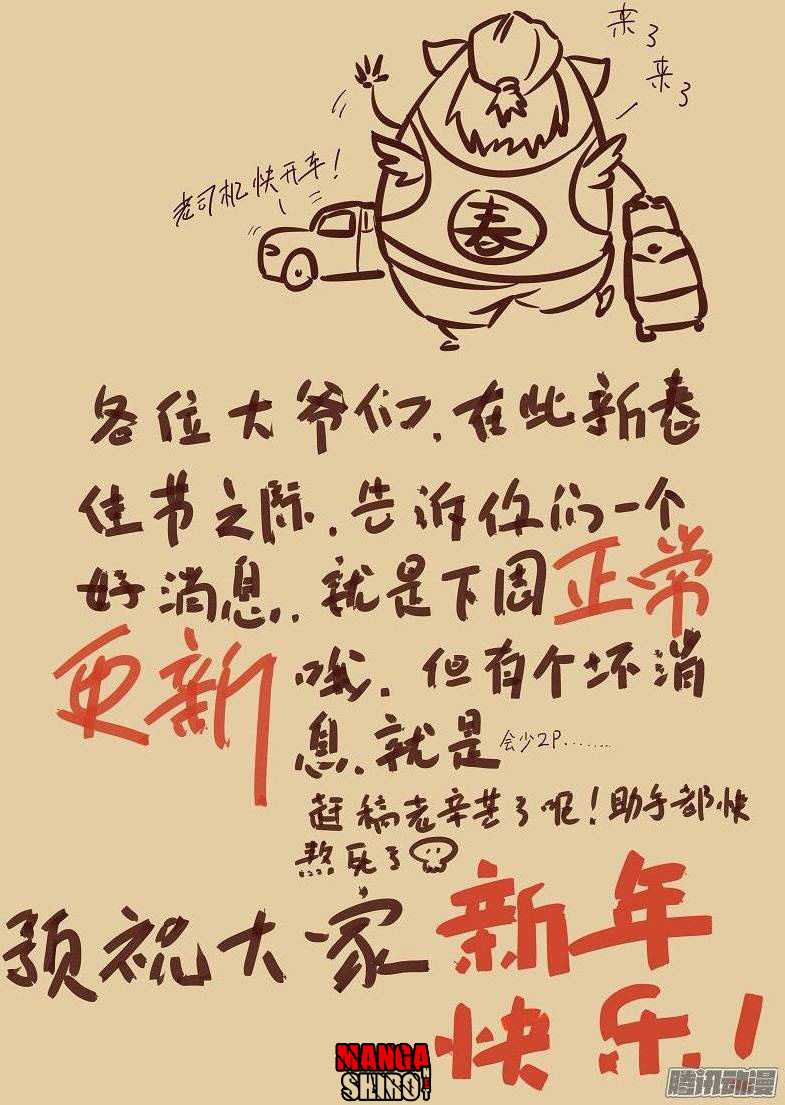 来了
来了
老司机快开车！
春
各位大爷们，在此新春
佳节之际，告诉你们一个
好消息，就是下周正常
更新哦，但有个坏消
息，就是会少2P.......
赶稿老辛苦了呢！助手都快
熬死了
预祝大家新年
快乐！
MANGA
SHIRO!
NET
腾讯动漫